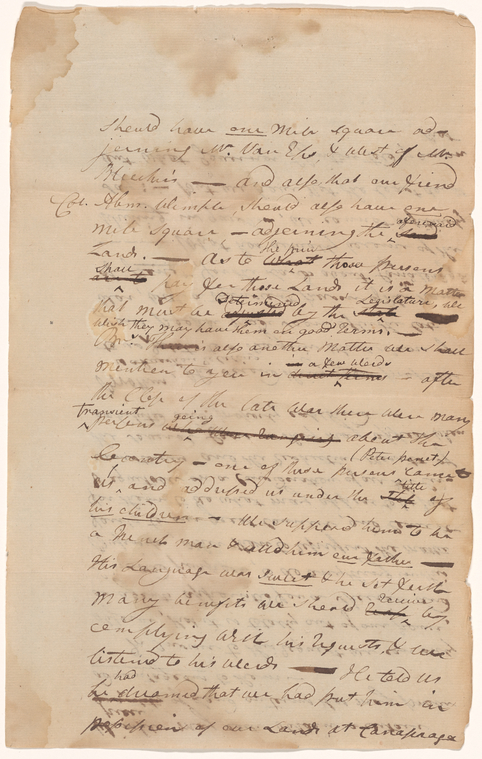 should have one mile square ad-
joining Mr. Van Eps & West of Mr.
— and also that our friend
Col. Abm. Wemple, should also have one
mile square — adjoining the aforesaid
Lands. — as to the price those persons
shall pay for those Lands it is a matter
that must be determined by the Legislature, we
wish they may have them on good Terms. —
also another Matter we shall
mention to you in a few words — after
the Close of the late War there were many
transient persons going about the
Country — one of those persons (Peter penet) came to
us, and addressed us under the title of
his children — We supposed him to be
a French man & called him our father —
His Language was sweet & he set forth
many benefits we should receive by
complying with his requests & we
listened to his words — He told us
he had dreamed that we had put him in
possession of our Lands at Canaseraga